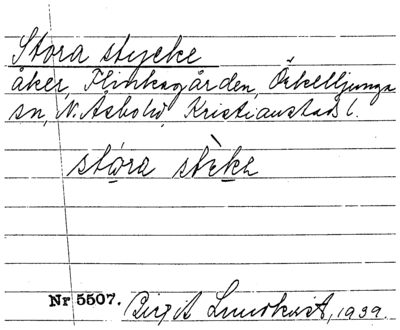 Stora stycke
åker, Flinkagården, Örkelljunga
sn, N. Åsbohd, Kristianstads l.
stóra stỳke
Nr 5507. Birgit Lundkvist, 1939.